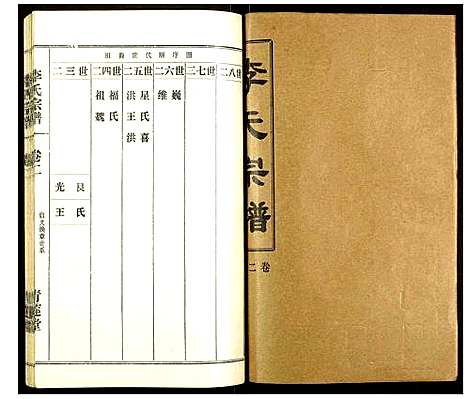 李氏宗譜
卷二
世八二
世七二
世六二
世五二
世四二
世三二
巍
維
星氏喜
洪王洪
福氏
祖魏
良氏
光王
李氏宗譜
卷二
青蓮堂